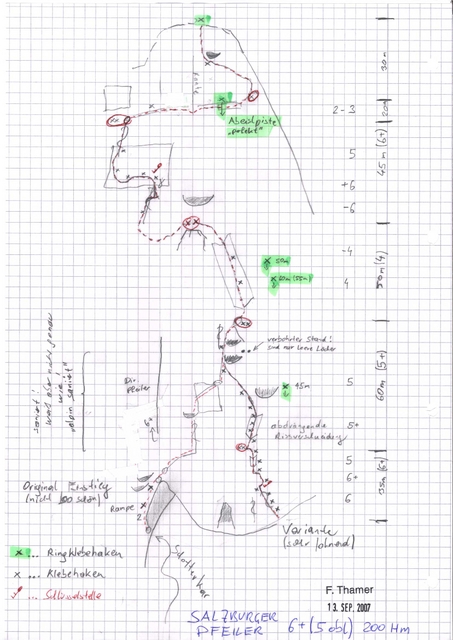 30m
2-3
20m
Abseilpiste
"perfekt"
5
45m (6+)
+6
-6
-4
50m
60m (55m)
4
50m (4)
verbohrter Stand!
sind nur leere Löcher
Dir.
Pfeiler
6+
5
45m
60m (5+)
saniert!
"klein saniert"
5+
abdrängende
Rissverschneidung
5
6+
35m (6+)
6
Original Einstieg
(nicht so schön)
Rampe
2
Variante
(sehr lohnend)
Schotterkar
x ... Ringklebehaken
x ... Klebehaken
... Schlüsselstelle
F. Thamer
13. SEP. 2007
SALZBURGER
PFEILER 6+ (5 obl) 200 Hm